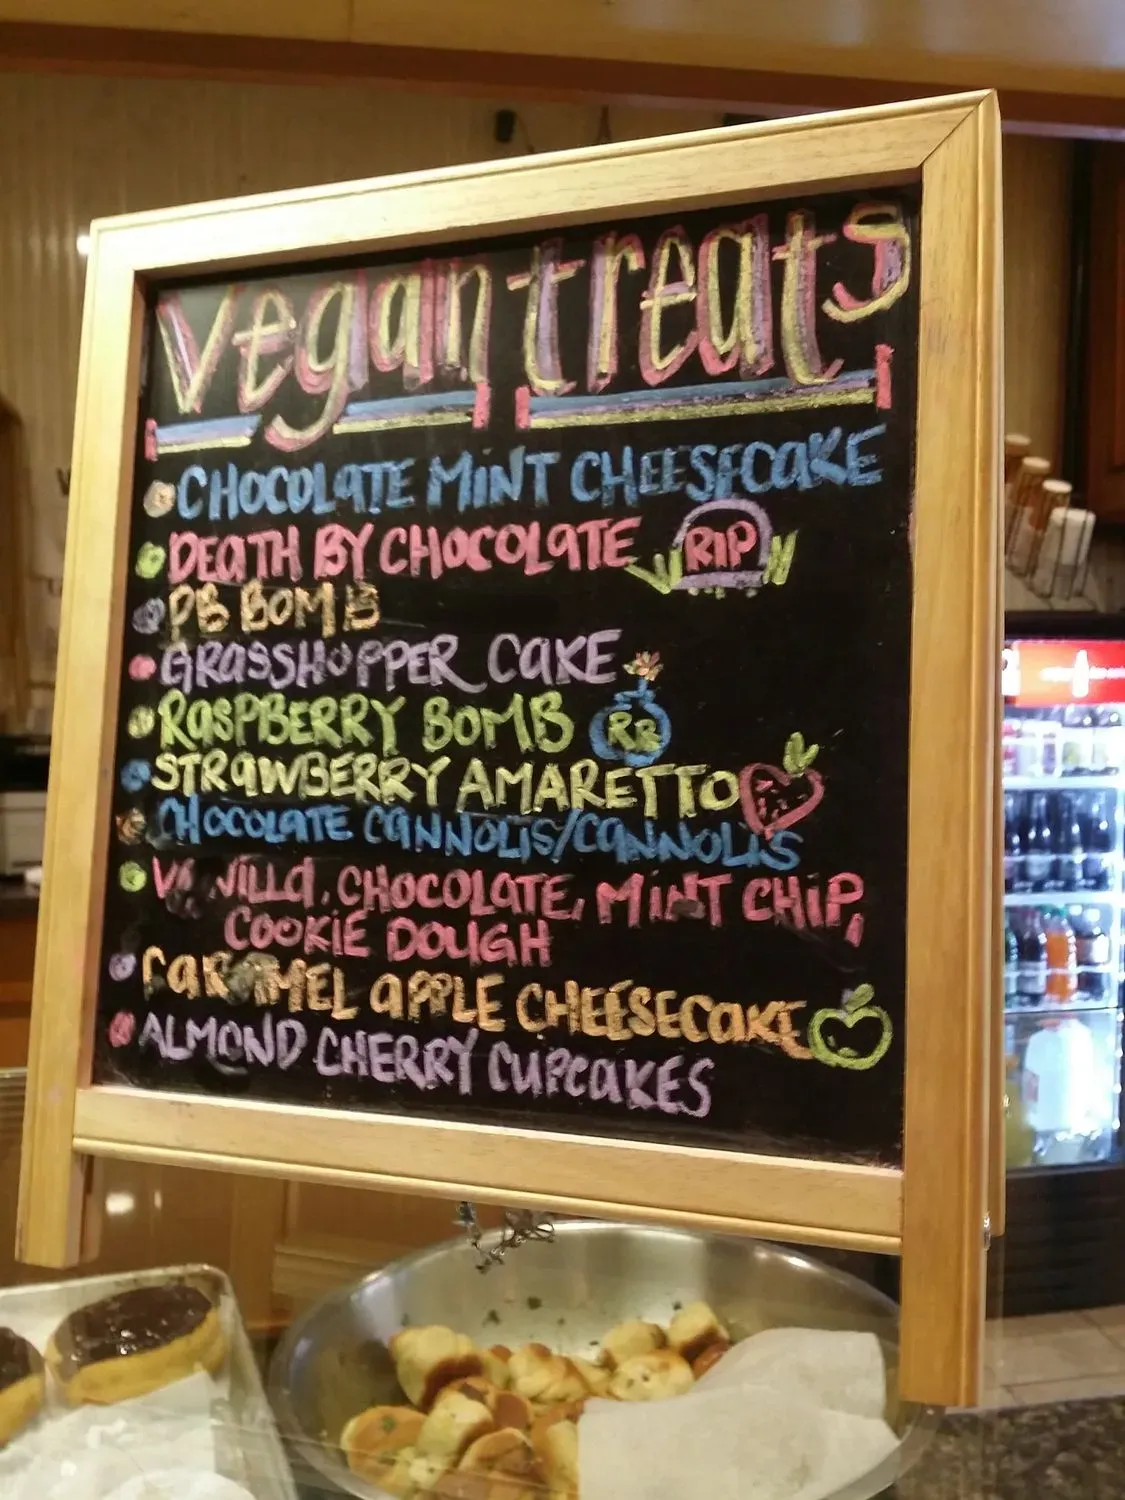 Vegan treats
CHOCOLATE MINT CHEESECAKE
DEATH BY CHOCOLATE RIP
PB BOMB
GRASSHOPPER CAKE
RASPBERRY BOMB RB
STRAWBERRY AMARETTO
CHOCOLATE CANNOLIS/CANNOLIS
VANILLA, CHOCOLATE, MINT CHIP,
COOKIE DOUGH
CARAMEL APPLE CHEESECAKE
ALMOND CHERRY CUPCAKES